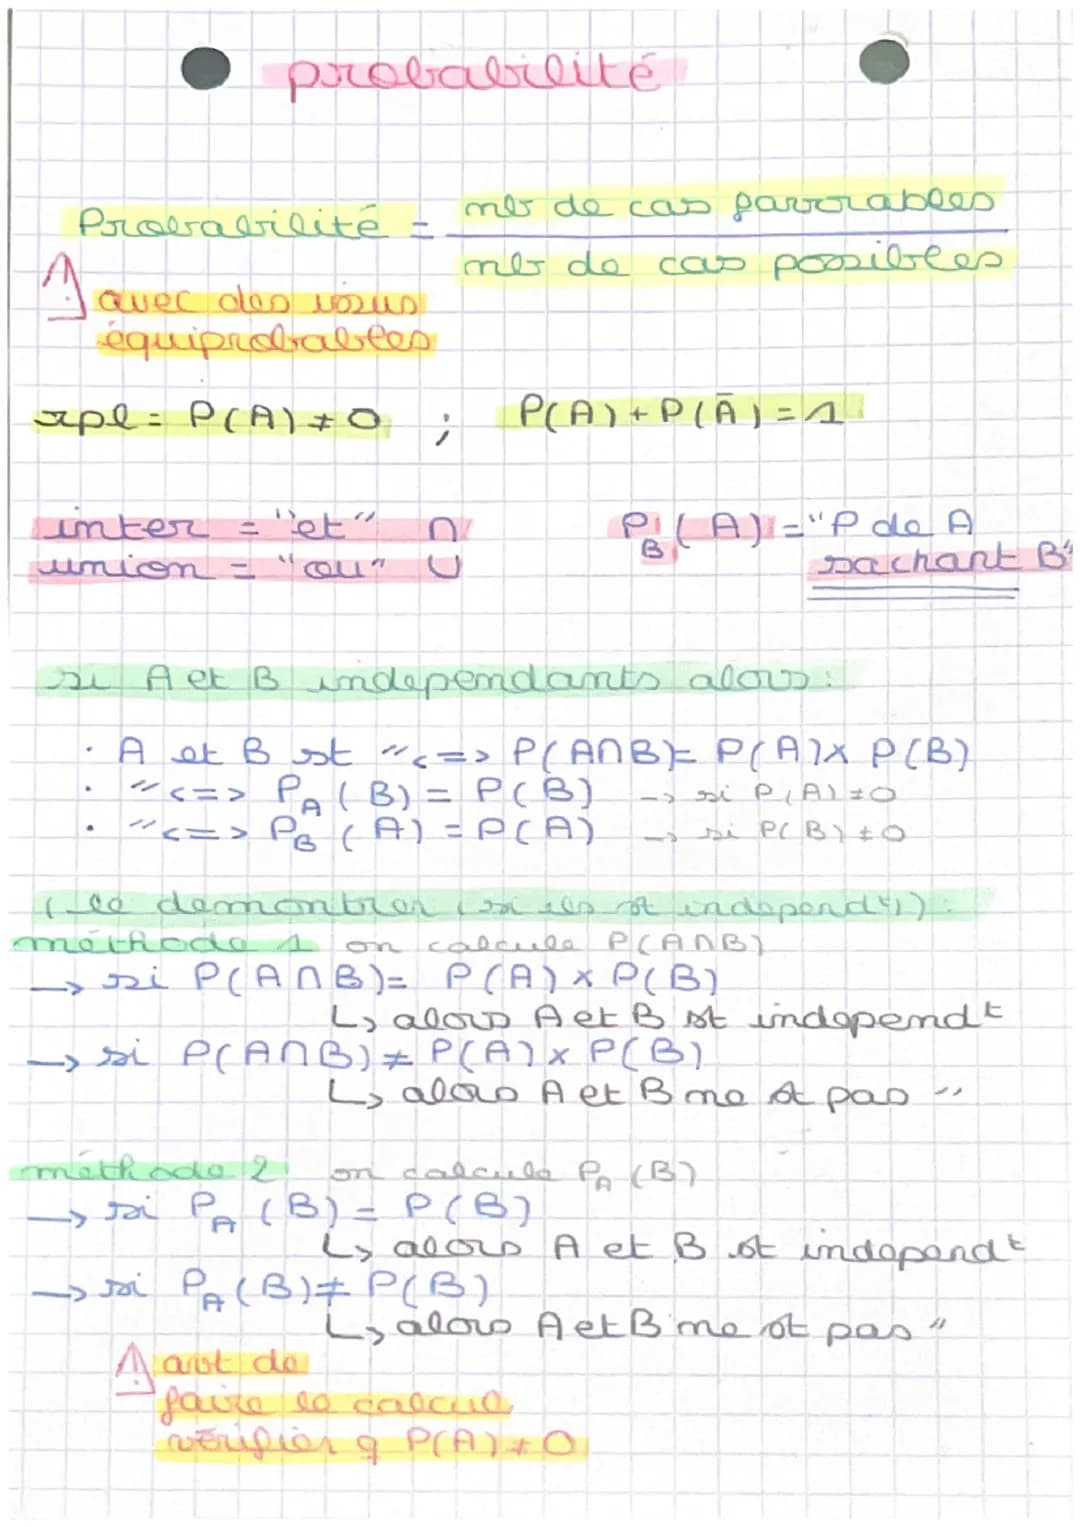 probabilité
Probabilité = nbr de cas favorables
nbr de cas possibles
⚠ avec des issus
équiprobables
xpl = P(A) ≠ 0 ; P(A) + P(Ā) = 1
inter = "et" ∩
union = "ou" ∪
P_B(A) = "P de A
sachant B"
si A et B independants alors:
· A et B st "<=> P(A∩B) = P(A) x P(B)
· "<=> P_A(B) = P(B) -> si P(A) ≠ 0
· "<=> P_B(A) = P(A) -> si P(B) ≠ 0
( le demontrer (si ils st independ^t)) :
méthode 1 on calcule P(A∩B)
-> si P(A∩B) = P(A) x P(B)
↳ alors A et B st independ^t
-> si P(A∩B) ≠ P(A) x P(B)
↳ alors A et B ne st pas "
méthode 2 on calcule P_A(B)
-> si P_A(B) = P(B)
↳ alors A et B st independ^t
-> si P_A(B) ≠ P(B)
↳ alors A et B ne st pas "
⚠ avt de
faire le calcul
vérifier q P(A) ≠ 0